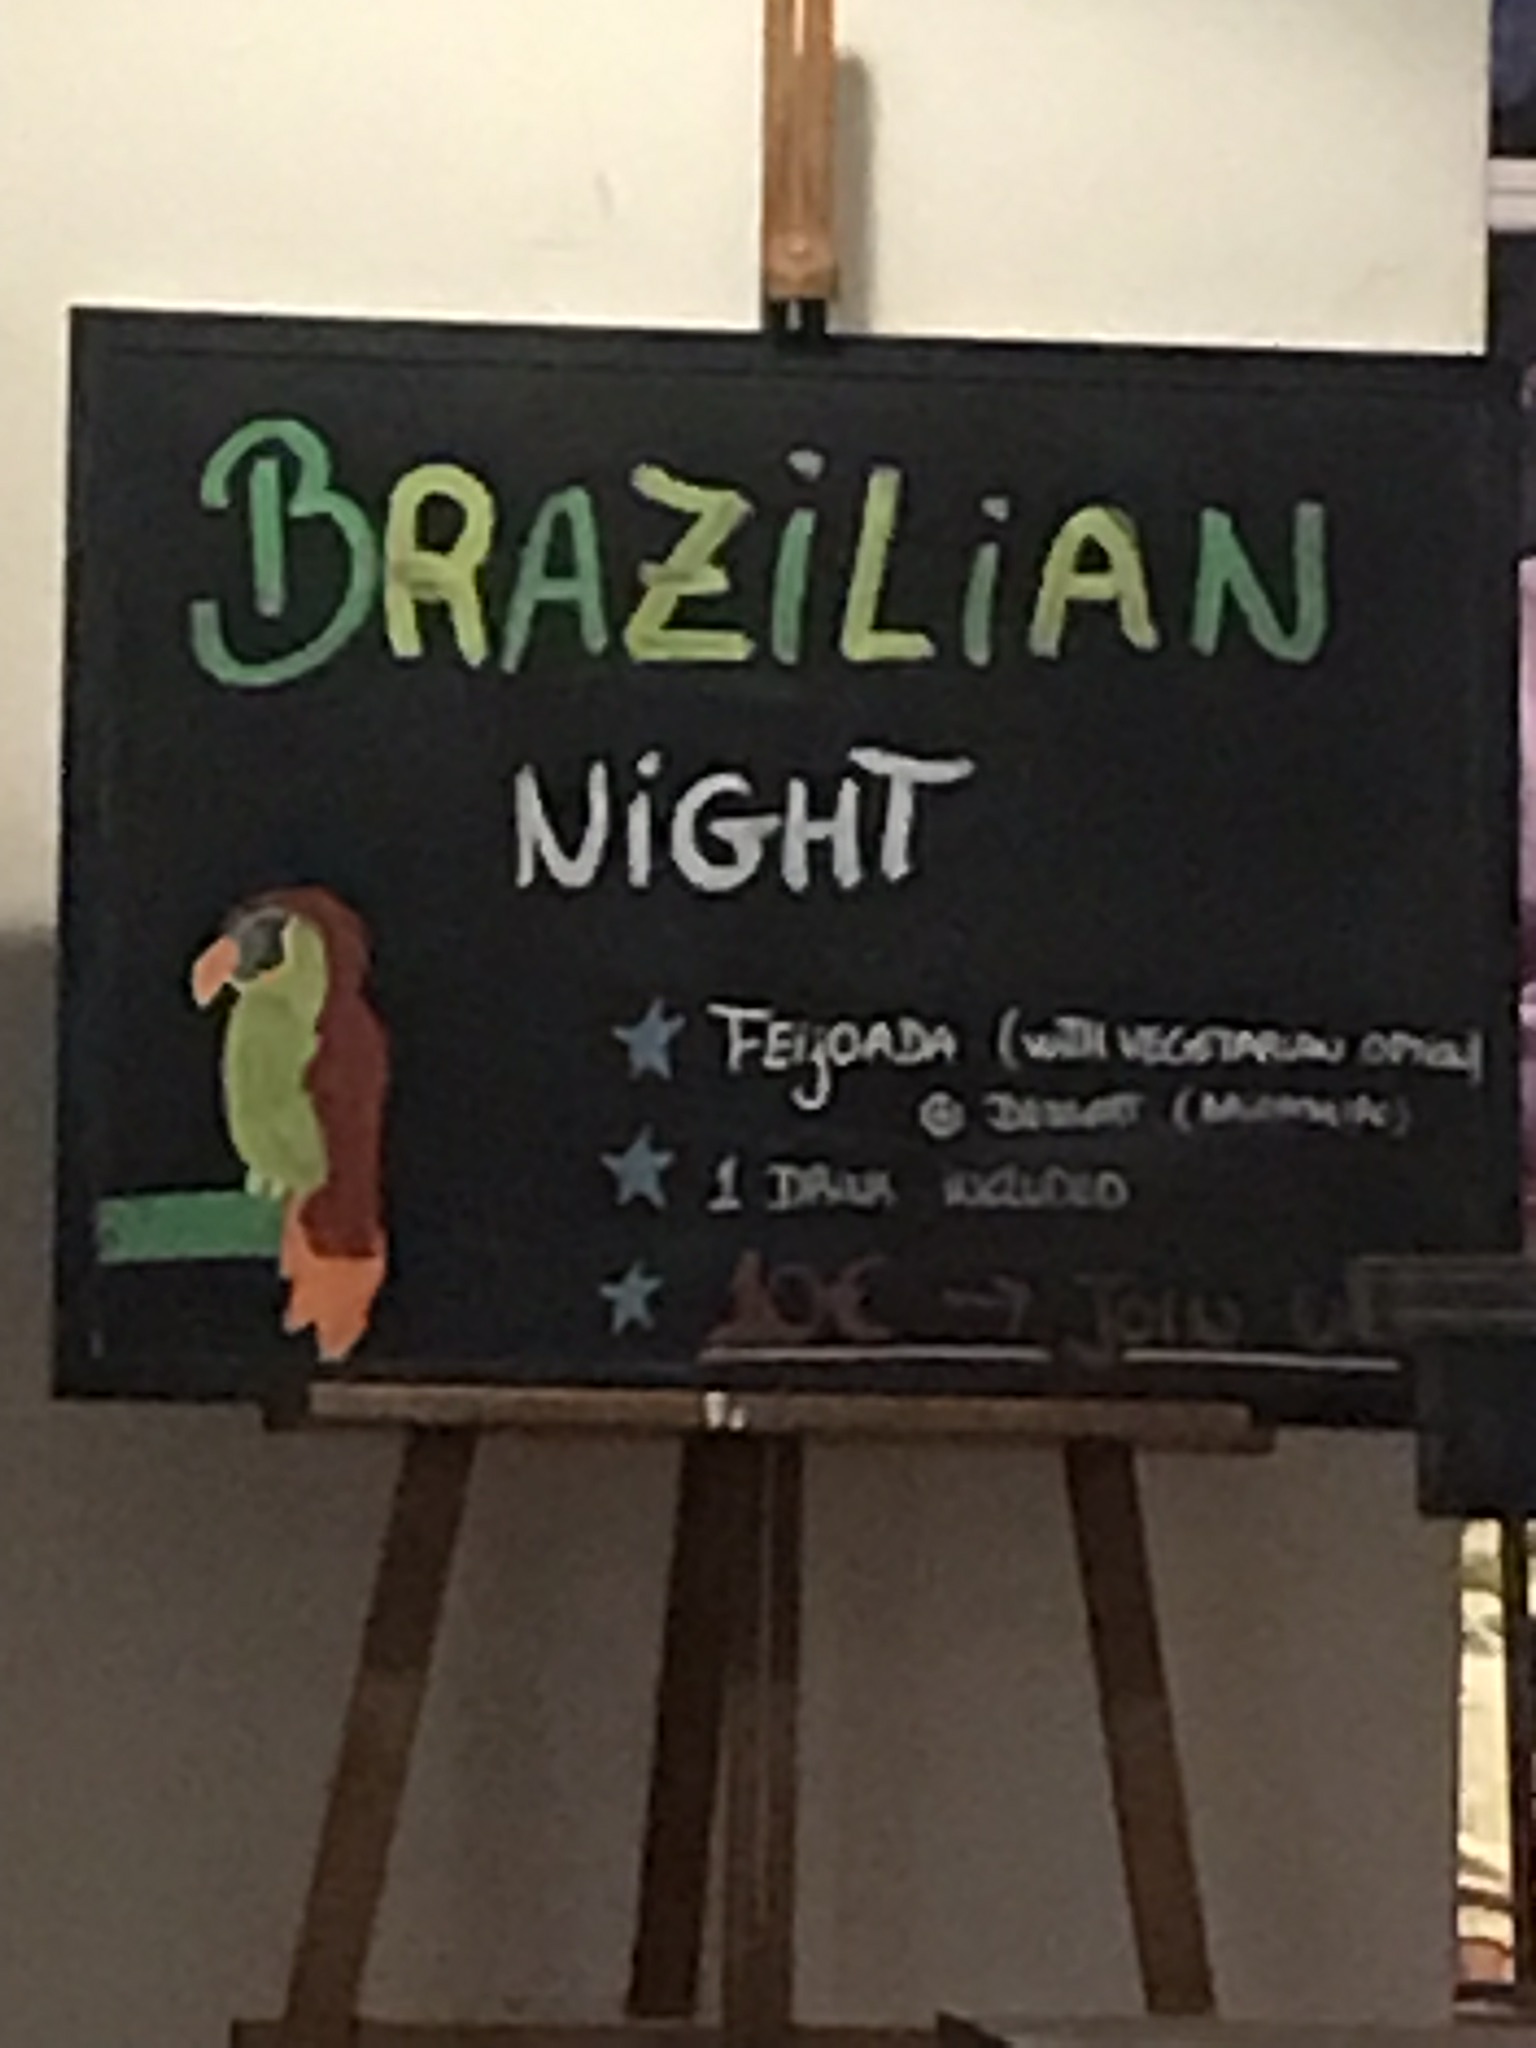 BRAZiLiAN
NiGHT
FEijOADA (WITH VEGETARIAN OPTION)
DESSERT
1 DRINK INCLUDED
10€ → JOIN US